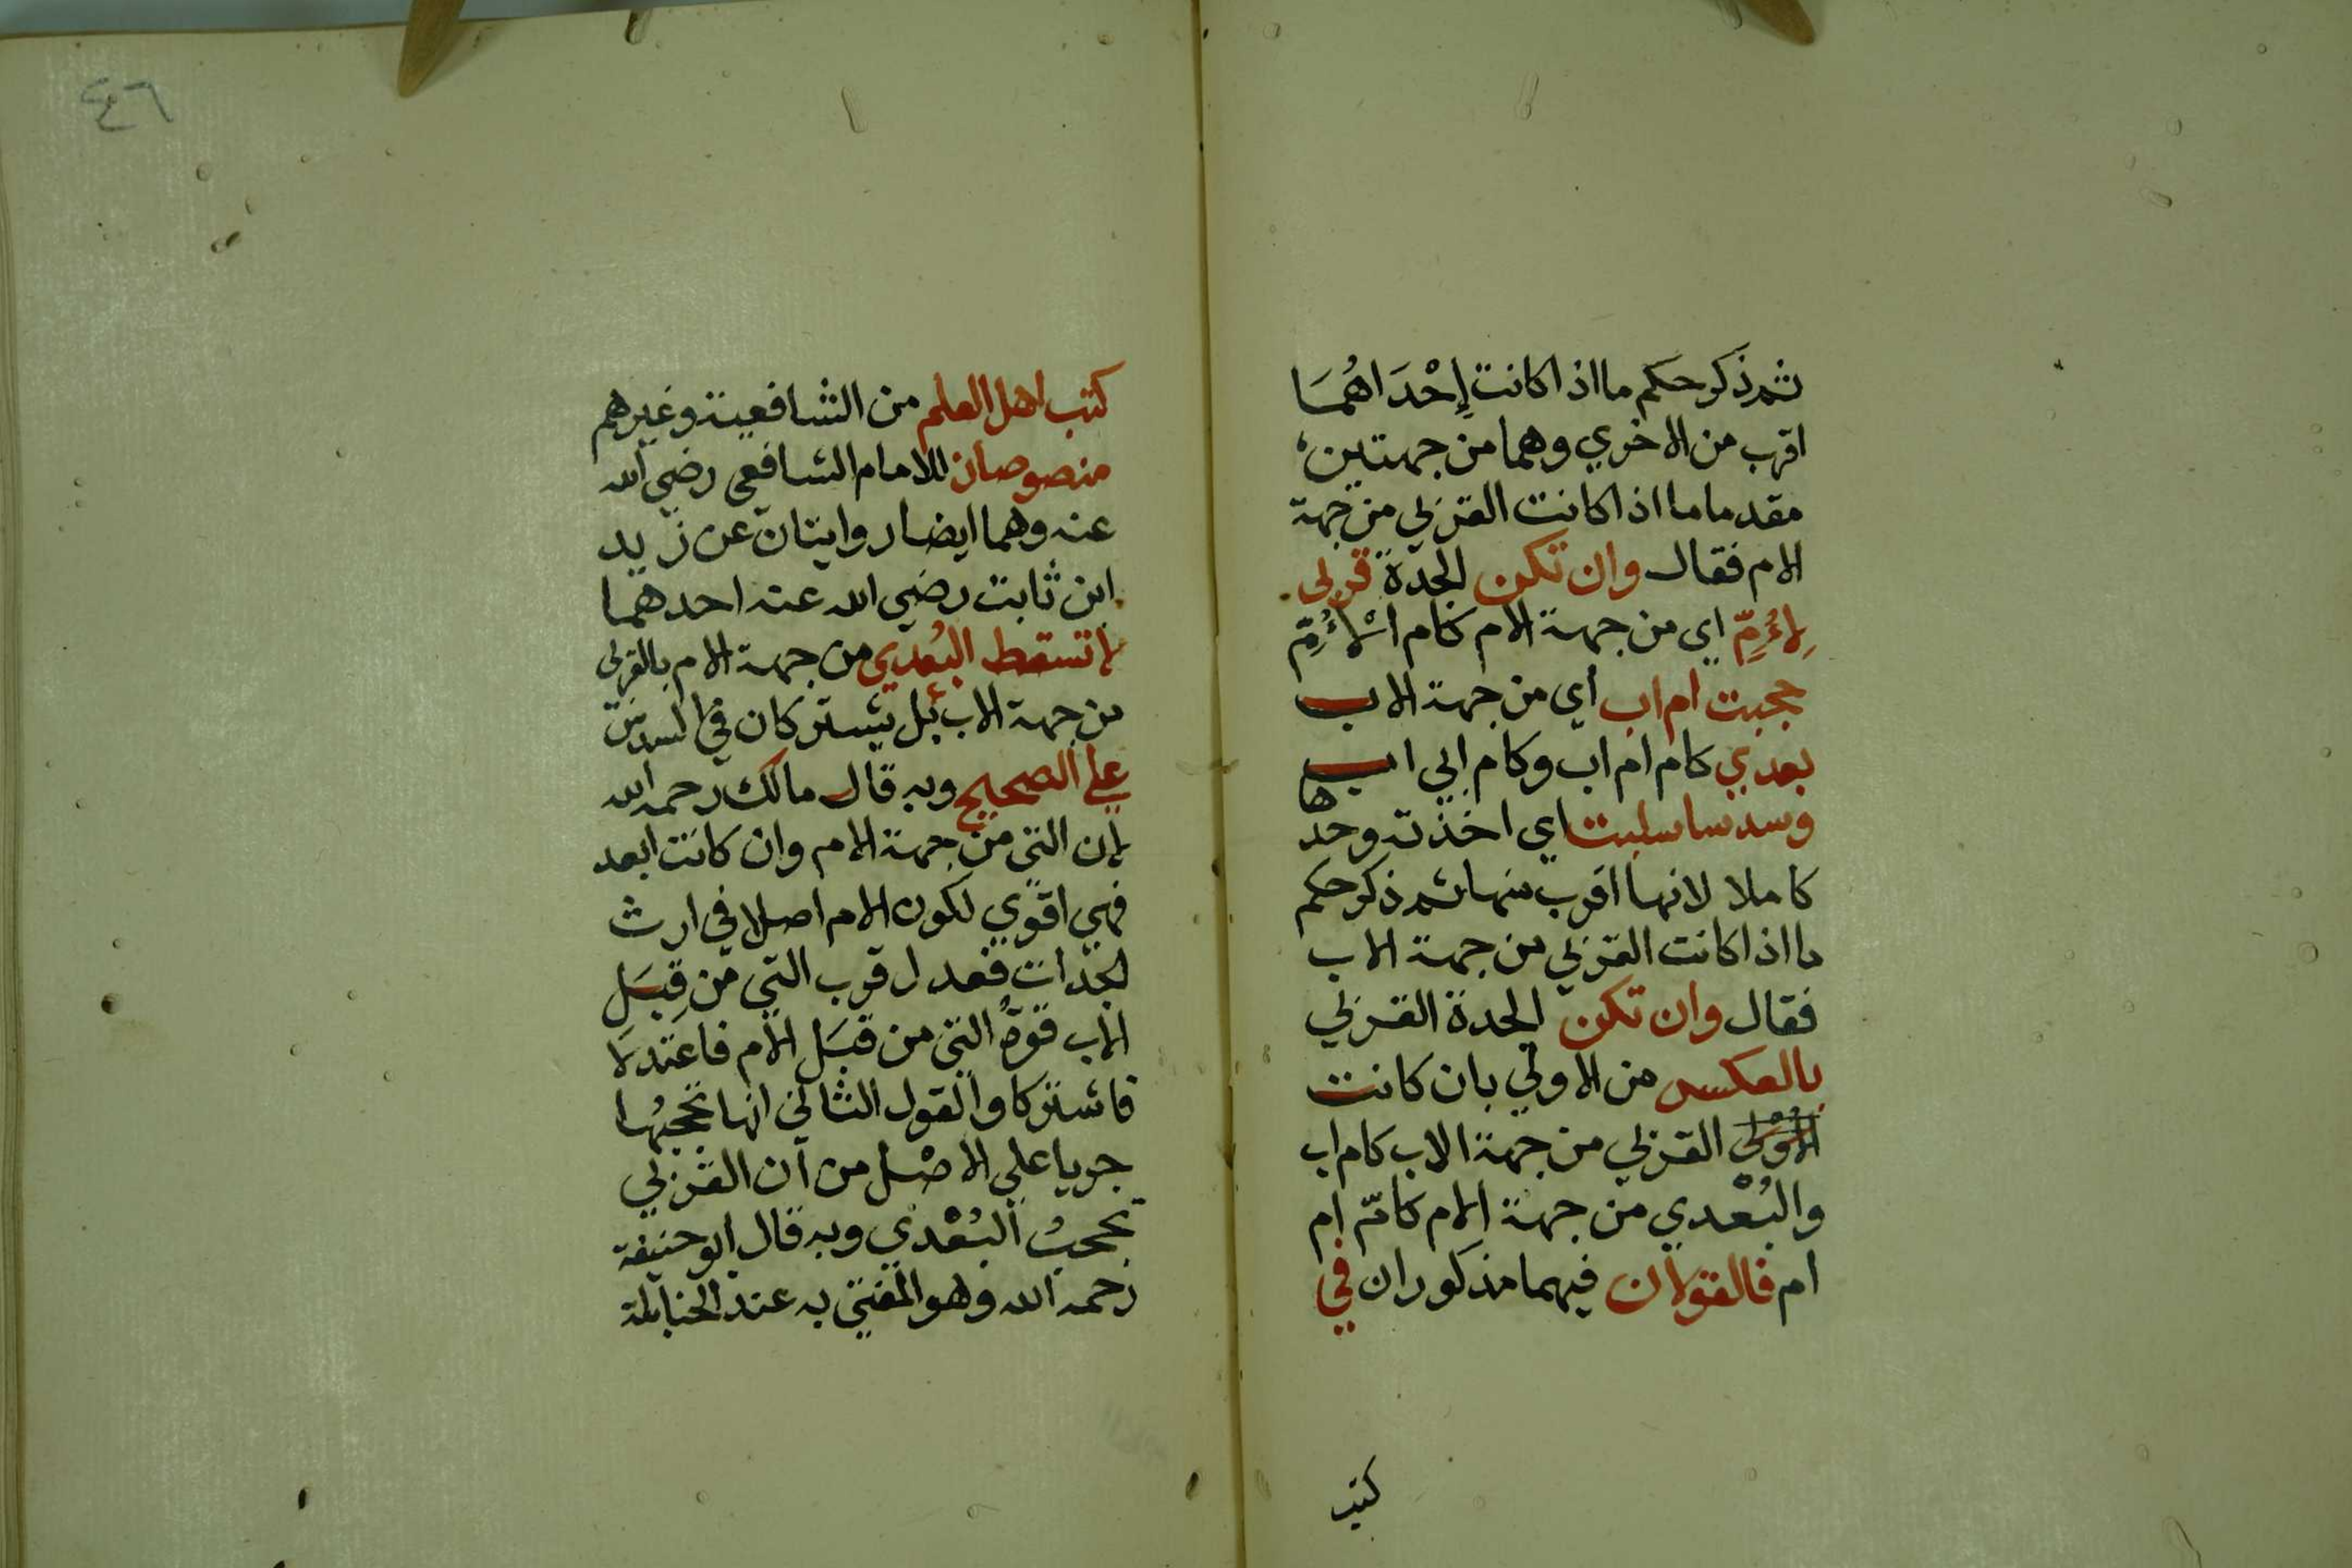 ثم ذكر حكم ما اذا كانت إِحْدَاهُمَا
اقرب من الاخري وهما من جهتين
مقدما ما اذا كانت القربي من جهة
الام فقال وان تكن الجدة قربى
لِاُمِّ اي من جهة الام كام الْاُمِّ
حجبت ام اب أي من جهة الاب
بعدي كام ام اب وكام ابي اب
وسدسا سلبت اي اخذته وحدها
كاملا لانها اقرب منها ثم ذكر حكم
ما اذا كانت القربي من جهة الاب
فقال وان تكن الجدة القربي
بالعكس من الاولي بان كانت
القربي من جهة الاب كام اب
والبُعْدي من جهة الام كامّ ام
ام فالقولان فيهما مذكوران في
كتب
٤٦
كتب اهل العلم من الشافعية وغيرهم
منصوصان للامام الشافعي رضي الله
عنه وهما ايضا روايتان عن زيد
ابن ثابت رضي الله عنه احدهما
لا تسقط البُعدي من جهة الام بالقربى
من جهة الاب بل يشتركان في السدس
علي الصحيح وبه قال مالك رحمه الله
لان التي من جهة الام وان كانت ابعد
فهي اقوي لكون الام اصلا في ارث
الجدات فعدل قرب التي من قِبَل
الاب قوةُ التي من قبَل الام فاعتدلا
فاشتركا والقول الثاني انها تحجبُها
جريا علي الاصْل من ان القربي
تحجبُ البُعْدي وبه قال ابو حنيفة
رحمه الله وهو المفتي به عند الحنابلة